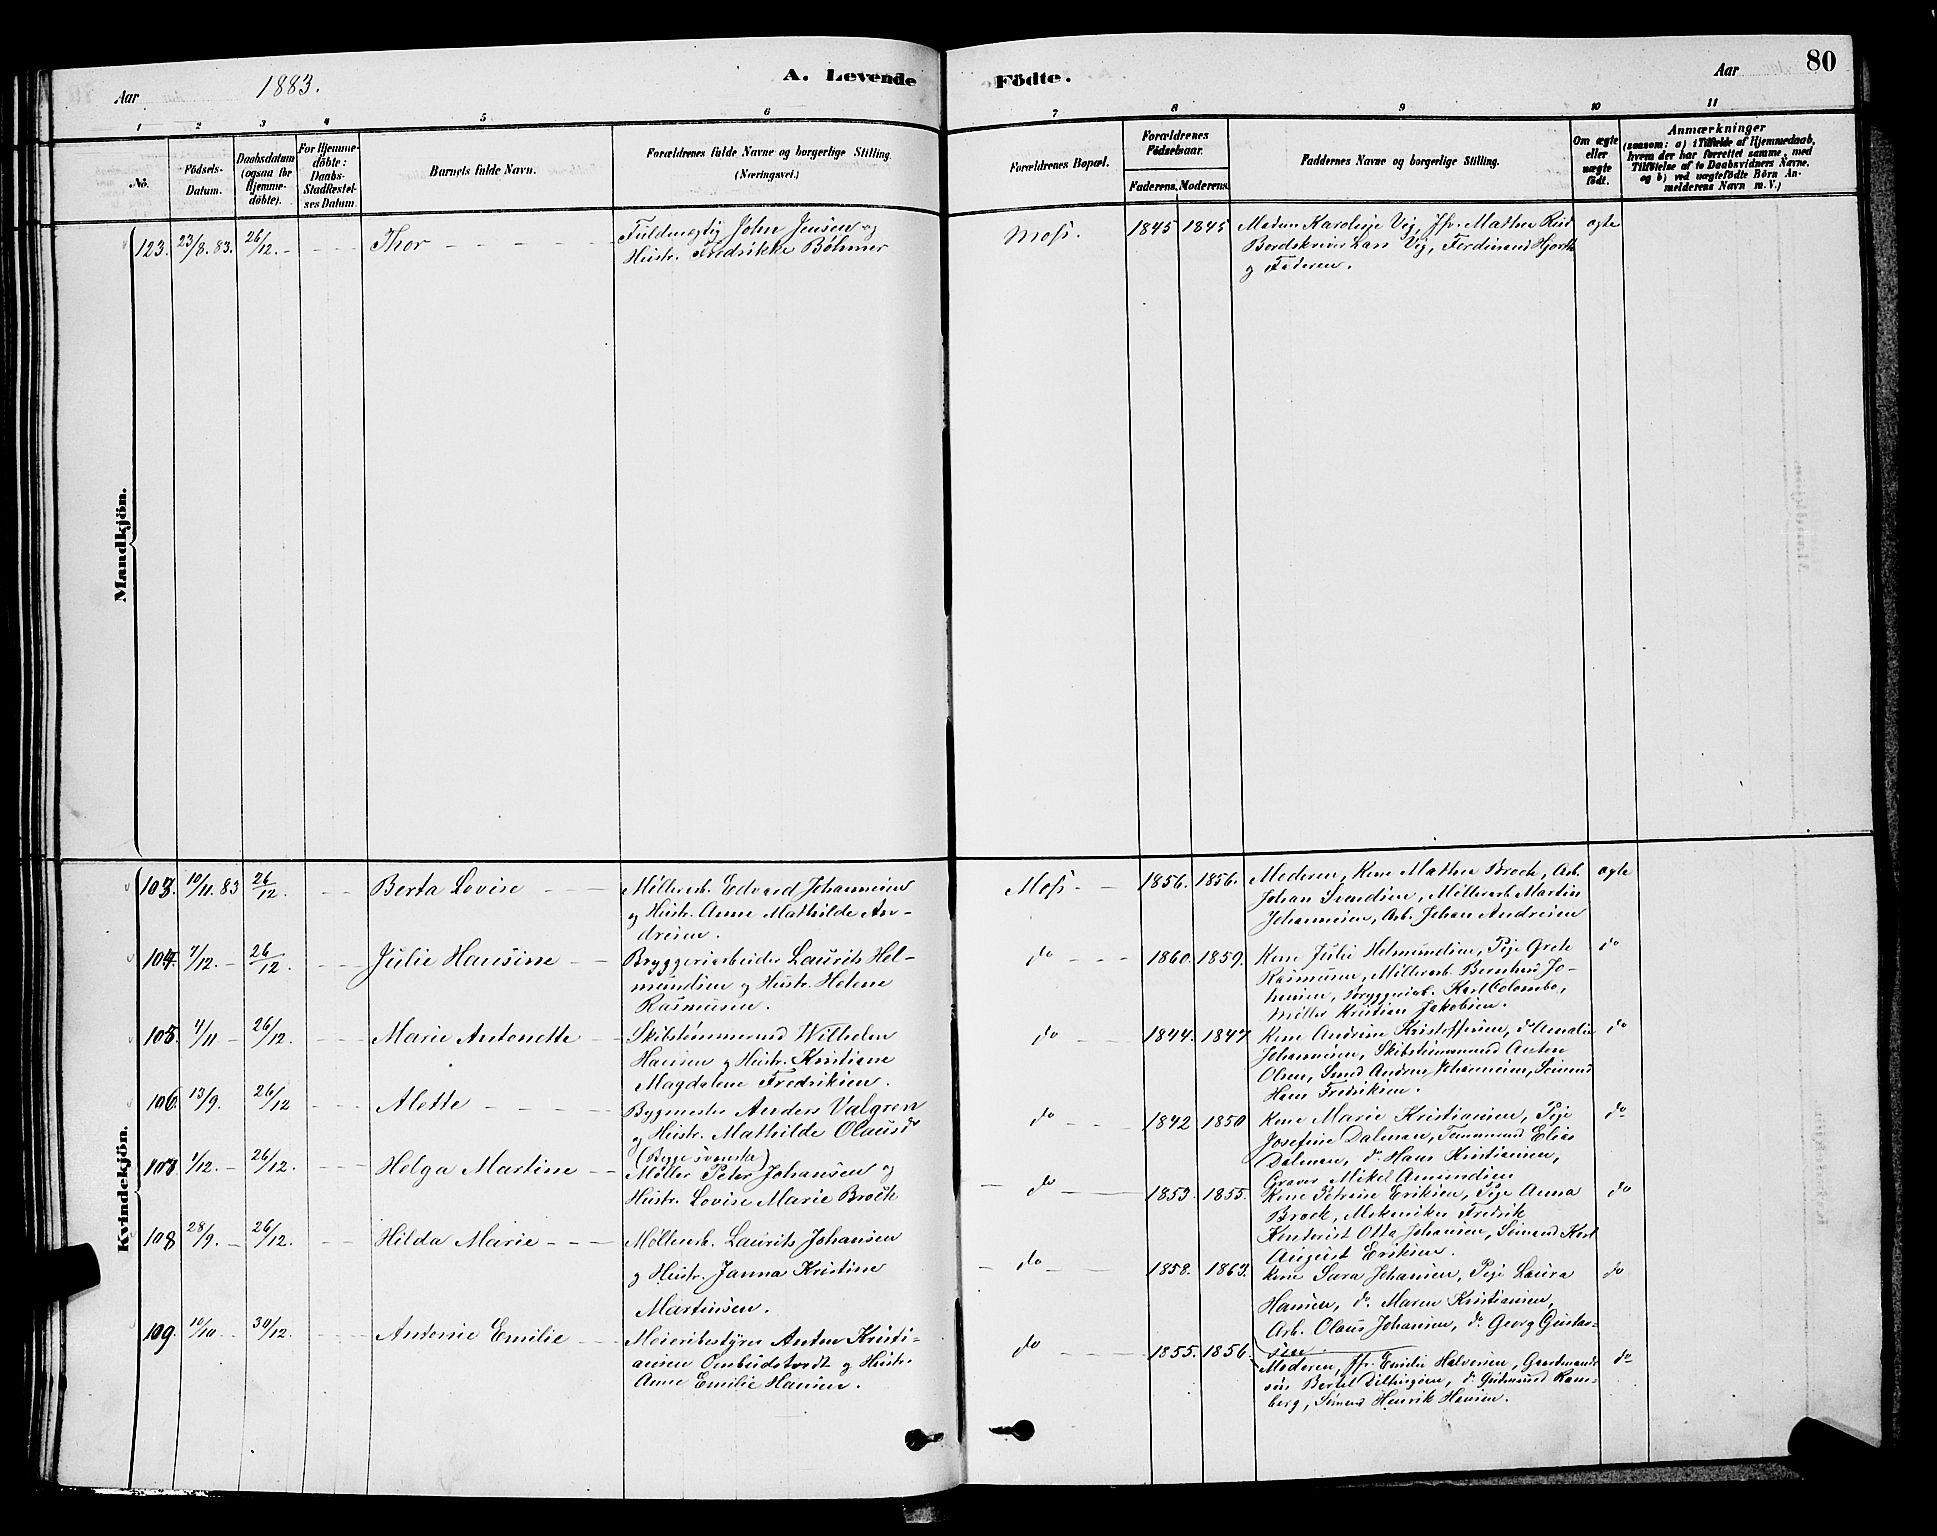 Aar 1883.
A. Levende Födte.
Aar
80
1 2 3 4 5 6 7 8 9 10 11
No.
Födsels-
Datum.
Daabsdatum
(ogsaa for
Hjemme-
döbte).
For Hjemme-
döbte:
Daabs-
Stadfæstel-
ses Datum.
Barnets fulde Navn.
Forældrenes fulde Navne og borgerlige Stilling.
(Næringsvei.)
Forældrenes Bopæl.
Forældrenes
Födselsaar.
Faderens. Moderens.
Faddernes Navne og borgerlige Stilling.
Om ægte
eller
uægte
födt.
Anmærkninger
(saasom: a) i Tilfælde af Hjemmedaab,
hvem der har forrettet samme, med
Tilföielse af to Daabsvidners Navne,
og b) ved uægtefödte Börn An-
melderens Navn m. V.)
Mandkjön.
123. 23/8. 83. 26/12. - Thor
Fuldmegtig John Jensen og
Hustr. Fredrikke Böhmer
Moss. 1845 1845
Madam Karoline Vig, Jfr. Mathea Rüd
Bordskriver Lars Vig, Ferdinand Hjorth
og Faderen.
ægte
Kvindekjön.
103. 10/11. 83 26/12. Berta Lovise
Møllerarb. Edvard Johannesen
og Hustr. Anne Mathilde An-
dresen.
Moss 1856. 1856.
Moderen, Kone Mathea Brock, Arb.
Johan Svendsen, Møllerarb. Martin
Johannesen, Arb. Johan Andresen
ægte
104. 7/12. - 26/12. Julie Hansine
Bryggeriarbeider Laurits Hel-
mundsen og Hustr. Helene
Rasmusen.
do 1860. 1859.
Kone Julie Helmundsen, Pige Grete
Rasmusen, Møllerarb. Bernhard Jo-
hansen, Bryggeriarb. Karl Colombo,
Møller Kristian Jakobsen.
do
105. 4/11 - 26/12. Marie Antonette
Skibstømmermd Wilhelm
Hansen og Hustr. Kristiane
Magdalene Fredriksen.
do 1844. 1847
Kone Andrine Kristoffersen, do Amalie
Johannesen, Skibstømmermd Anton
Olsen, Smed Andreas Johannesen, Sömand
Hans Fredriksen.
do
106. 13/9. 26/12 Alette
Bygmester Anders Valgren
og Hustr. Mathilde Olausdr
(Begge svenske)
do 1842 1850
Kone Marie Kristiansen, Pige
Josefine Dalman, Tømmermd Elias
Dalman, do Hans Kristiansen,
Graver Mikel Amundsen
do
107 1/12. - 26/12. Helga Martine
Møller Peter Johansen og
Hustr. Lovise Marie Brock
do 1853. 1855.
Kone Petrine Eriksen, Pige Anna
Brock, Mekeniker Fredrik
Kontorist Otto Johansen, Sömand Karl
August Eriksen.
do
108 28/9. - 26/12. Hilda Marie
Møllerarb. Laurits Johansen
og Hustr. Janna Kristine
Martinsen.
do 1858. 1863.
Kone Sara Johansen, Pige Laura
Hansen, do. Maren Kristiansen,
Arb. Olaus Johansen, do Georg Gustav-
sen.
do
109. 10/10 30/12. Antonie Emilie
Meieribestyrer Anton Kristi-
ansen Ombudstvedt og Hustr.
Anne Emilie Hansen.
do 1855. 1856.
Moderen, Jfr. Emilie Halvorsen, Gaardmands-
søn Bertel Dillingøen, do. Gudmund Ram-
berg, Sömand Henrik Hansen.
do